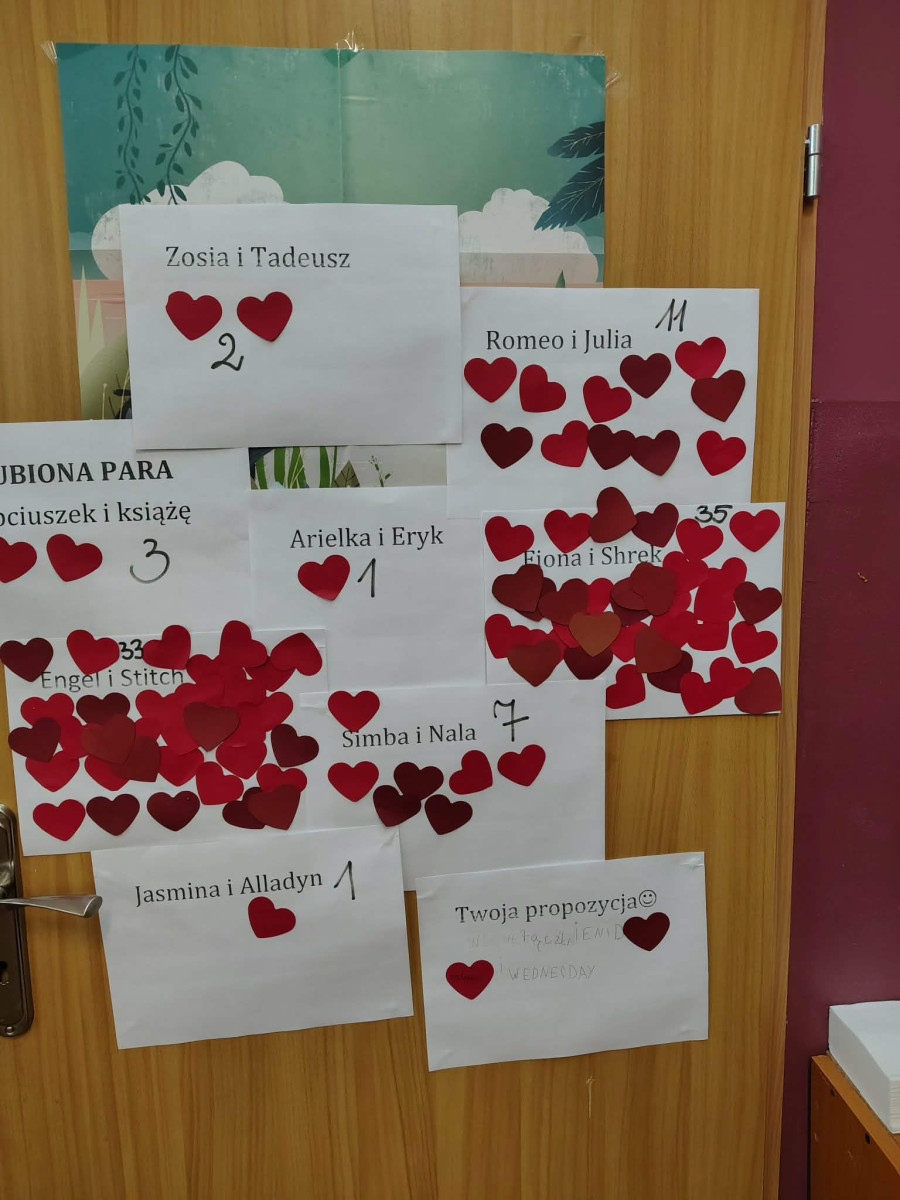 Zosia i Tadeusz
2
11
Romeo i Julia
UBIONA PARA
pciuszek i książę
3
Arielka i Eryk
1
35
Fiona i Shrek
33
Engel i Stitch
7
Simba i Nala
Jasmina i Alladyn 1
Twoja propozycja☺
ENID
i WEDNESDAY